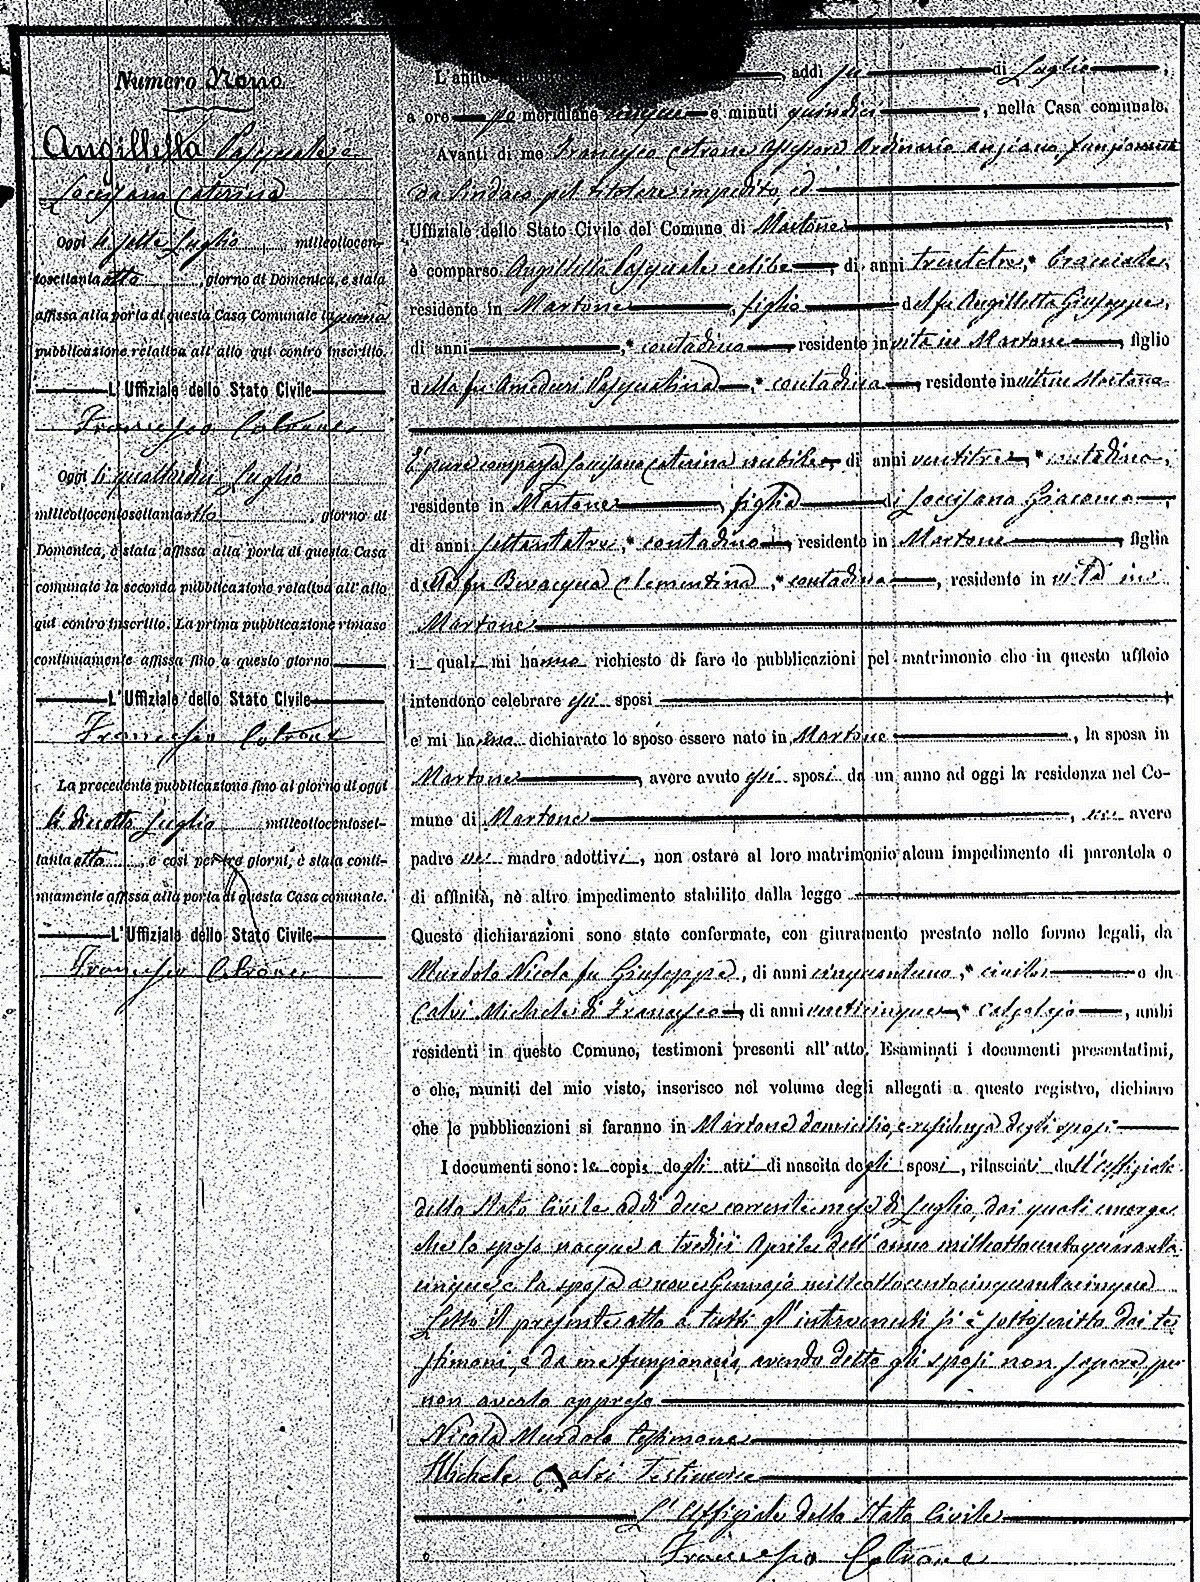 Numero Nono
Angilletta Pasquale e
Loccisano Caterina
Oggi li sette Luglio milleottocen-
tosettanta otto, giorno di Domenica, è stata
affissa alla porta di questa Casa Comunale la prima
pubblicazione relativa all'atto qui contro inscritto.
L'Uffiziale dello Stato Civile
Francesco Coltrone
Oggi li quattordici Luglio
milleottocentosettanta otto, giorno di
Domenica, è stata affissa alla porta di questa Casa
comunale la seconda pubblicazione relativa all'atto
qui contro inscritto. La prima pubblicazione rimase
continuamente affissa fino a questo giorno
L'Uffiziale dello Stato Civile
Francesco Coltrone
La precedente pubblicazione fino al giorno di oggi
li diciotto Luglio milleottocentoset-
tanta otto, e così per tre giorni, è stata conti-
nuamente affissa alla porta di questa Casa comunale.
L'Uffiziale dello Stato Civile
Francesco Coltrone
L'anno addì sei di Luglio,
a ore po meridiane cinque e minuti quindici, nella Casa comunale.
Avanti di me Francesco Coltrone Assessore Ordinario anziano, funzionante
da Sindaco pel titolare impedito, ed
Uffiziale dello Stato Civile del Comune di Martone
è comparso Angilletta Pasquale celibe, di anni trentatre, bracciale,
residente in Martone, figlio del fu Angilletta Giuseppe,
di anni, contadino, residente in vita in Martone, figlio
della fu Ameduri Pasqualina, contadina, residente in vita in Martone
È pure comparsa Loccisano Caterina nubile, di anni ventitre, contadina,
residente in Martone, figlia di Loccisano Giacomo,
di anni settantatre, contadino, residente in Martone, figlia
della fu Bevacqua Clementina, contadina, residente in vita in
Martone
i quali mi hanno richiesto di fare le pubblicazioni pel matrimonio che in questo ufficio
intendono celebrare essi sposi
e mi hanno dichiarato lo sposo essere nato in Martone, la sposa in
Martone, avere avuto essi sposi da un anno ad oggi la residenza nel Co-
mune di Martone, nè avere
padre nè madre adottivi, non ostare al loro matrimonio alcun impedimento di parentela o
di affinità, nè altro impedimento stabilito dalla legge
Queste dichiarazioni sono state confermate, con giuramento prestato nelle forme legali, da
Murdolo Nicola fu Giuseppe, di anni cinquantuno, civile e da
Calvi Michele di Francesco, di anni venticinque, calzolajo, ambi
residenti in questo Comune, testimoni presenti all'atto. Esaminati i documenti presentatimi,
e che, muniti del mio visto, inserisco nel volume degli allegati a questo registro, dichiaro
che le pubblicazioni si faranno in Martone domicilio, e residenza degli sposi
I documenti sono: le copie degli atti di nascita degli sposi, rilasciati dall'Uffiziale
dello Stato Civile addì due corrente mese di Luglio, dai quali emerge
che lo sposo nacque a tredici Aprile dell'anno milleottocentoquaranta
cinque, e la sposa a nove Gennajo milleottocentocinquantacinque
Letto il presente atto a tutti gl'intervenuti si è sottoscritto dai te
stimoni, e da me funzionario, avendo detto gli sposi non sapere, per
non averlo appreso
Nicola Murdolo testimone
Michele Calvi Testimone
L'Uffiziale dello Stato Civile
Francesco Coltrone